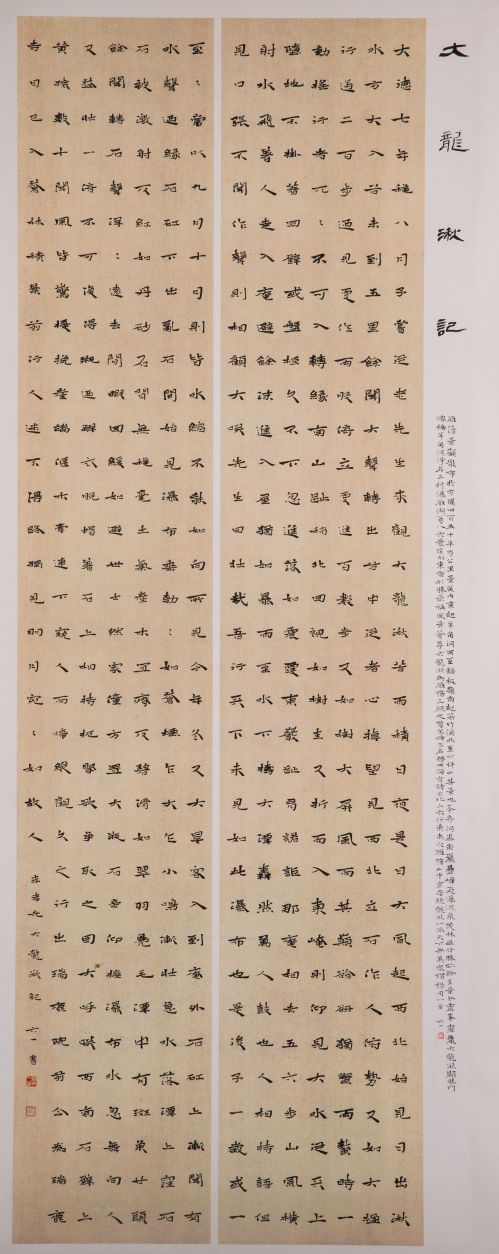 大龍湫記
大德七年秋八月予嘗從老先生來觀大龍湫苦雨積日夜是日大風起西北始見日出湫
水方大入谷未到五里餘聞大聲轉出谷中從者心掉望見西北立石作人俯勢又如大楹
行過二百步迺見更作兩股倚立更進百數步又如樹大屏風而其顛谽谺猶蟹兩螯時一
動搖行者兀兀不可入轉緣南山趾稍北回視如樹圭又折而入東崦則仰見大水從天上
墮地不掛著四壁或盤桓久不下忽迸落如震霆東巖趾有諾詎那庵相去五六步山風橫
射水飛著人走入庵避餘沫迸入屋猶如暴雨至水下擣大潭轟然萬人鼓也人相持語但
見口張不聞作聲則相顧大笑先生曰壯哉吾行天下未見如此瀑布也是後予一歲或一
至々常以九月十月則皆水縮不能如向所見今年冬又大旱客入到庵外石矼上漸聞有
水聲迺緣石矼下出亂石間始見瀑布垂勃々如蒼煙乍大乍小鳴漸壯急水落潭上窪石
石被激射反紅如丹砂石間無秋毫土氣產木宜瘠反碧滑如翠羽鳧毛潭中有斑魚廿頭
餘聞轉石聲洋々遠去閒暇回緩如避世士然家僮方置大瓶石旁仰接瀑布水忽舞向人
又益壯一倍不可復得瓶迺解衣脫帽著石上相持扼掔欲爭取之因大呼笑西南石壁上
黃猿數十聞風皆驚擾挽崖端偃木牽連下窺人而啼縱觀久之行出瑞鹿院前今為瑞鹿
寺日已入蒼林積葉前行人迷不得路獨見明月宛々如故人
李孝光大龍湫記 六一書
雁蕩景觀散布於方圓四百五十平方公里景區內東起羊角洞西至鋸板嶺南起筋竹溪北至六坪山